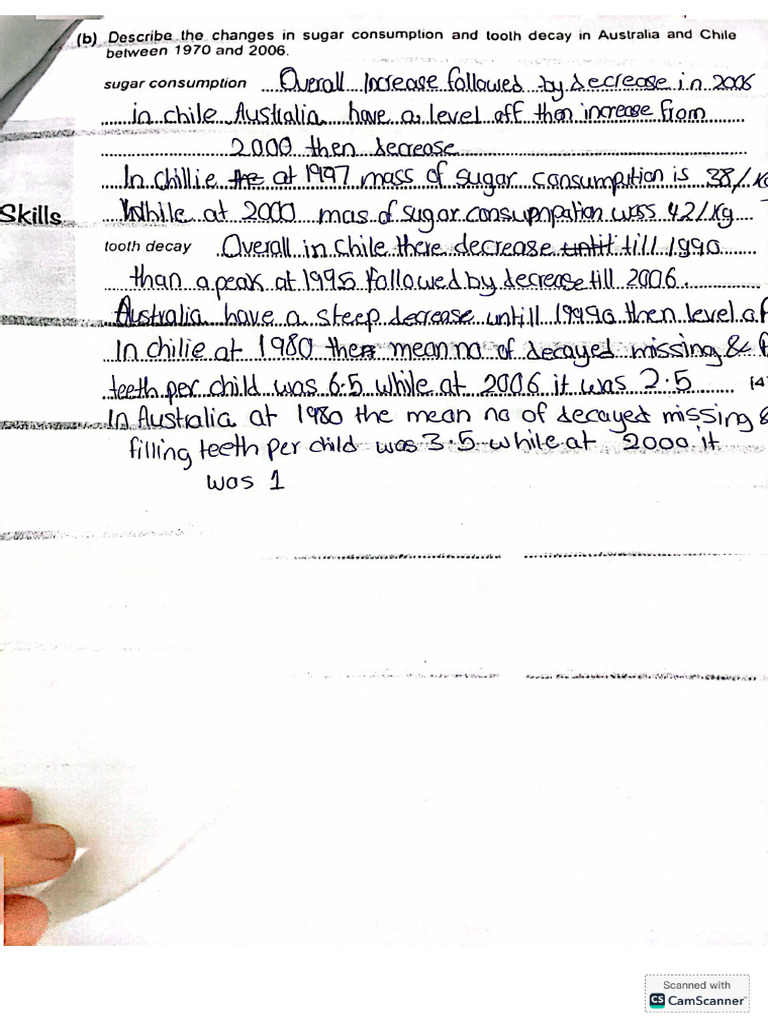 (b) Describe the changes in sugar consumption and tooth decay in Australia and Chile
between 1970 and 2006.
sugar consumption Overall Increase followed by decrease in 2006
in chile Australia have a level off then increase from
2000 then decrease
In Chillie the at 1997 mass of sugar consumpution is 38/kg
Skills While at 2000 mas of sugar consupnpation was 42/kg
tooth decay Overall in Chile there decrease untit till 1990
than a peak at 1995 followed by decrease till 2006.
Australia have a steep decrease untill 1999o then level of
In chilie at 1980 the mean no of decayed missing &
teeth per child was 6.5 while at 2006 it was 2.5 [4
In Australia at 1980 the mean no of decayed missing &
filling teeth per child was 3.5 while at 2000 it
was 1
Scanned with
CS CamScanner